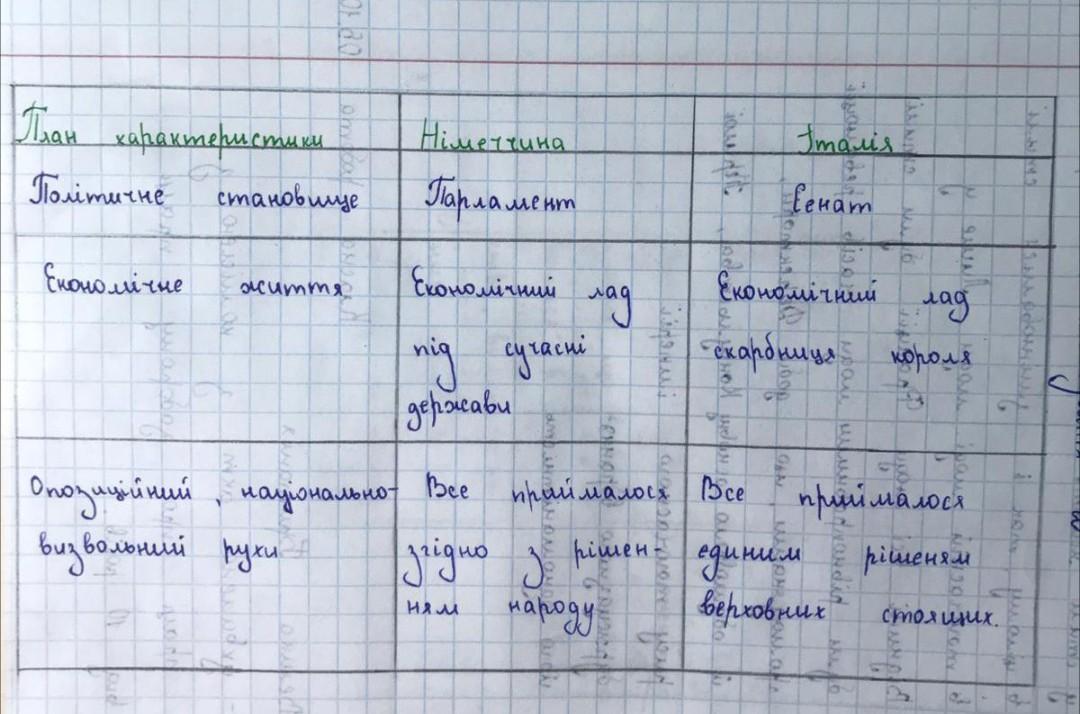 План характеристики
Німеччина
Італія
Політичне становище
Парламент
Сенат
Економічне життя
Економічний лад
під сучасні
держави
Економічний лад
скарбниця короля
Опозиційний, національно-
визвольний рухи
Все приймалося
згідно з рішен-
ням народу
Все приймалося
єдиним рішеням
верховних стоящих.